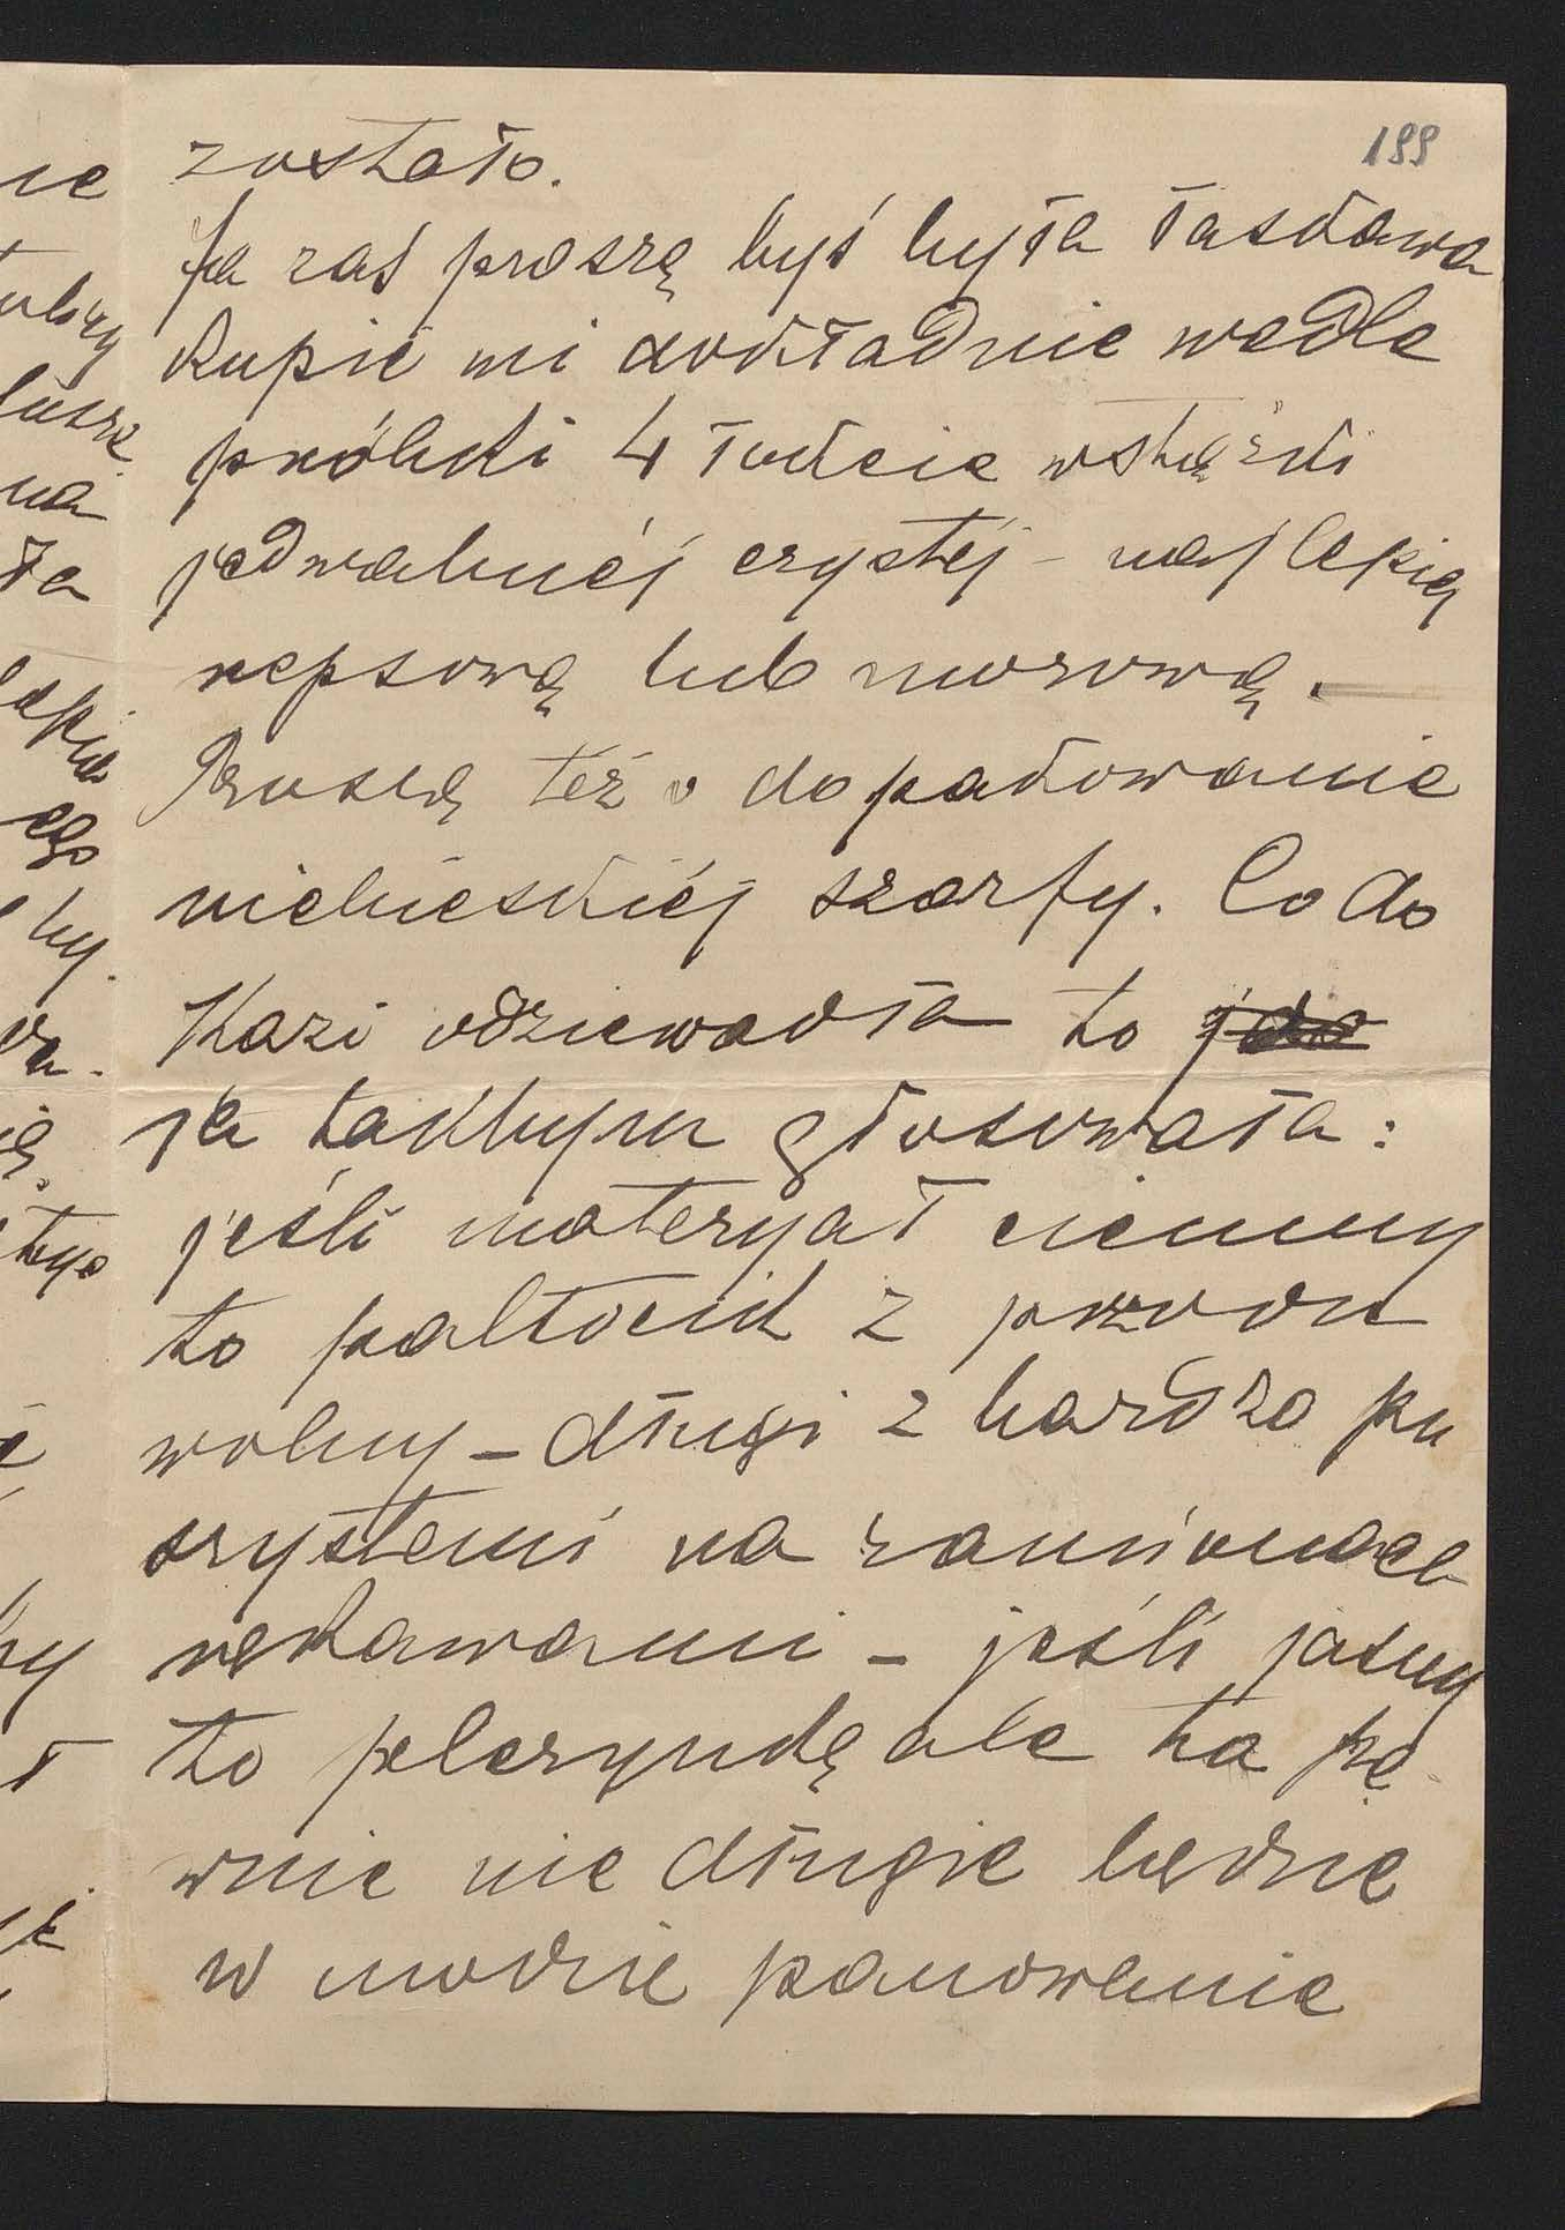 199
zostało.
Ja zaś proszę byś była łaskawa
kupić mi dokładnie wedle
próbki 4 łokcie wstążki
jedwabnéj czystéj - najlepiéj
repsową lub morową.
Proszę też o dopakowanie
niebieskiéj szarfy. Co do
Kazi odziewadła to
ja takbym głosowała:
jeśli materyał ciemny
to paltocik z przodu
wolny - długi z bardzo pu
szystemi na ramionach
rękawami - jeśli jasny
to pelerynkę ale ta pe
wnie nie długie będzie
w modzie panowanie